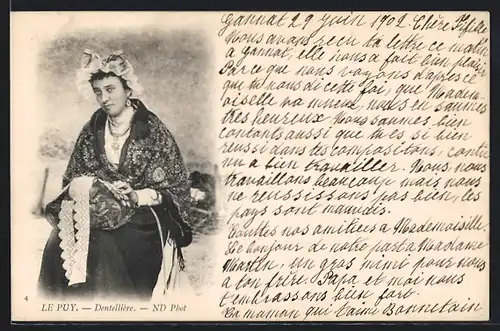 Gannat 29 Juin 1902. Chère Fifille
Nous avons reçu ta lettre ce matin
a Gannat, elle nous a fait bien plaisir
Parce que nous voyons d'après ce
que tu nous dis cette foi, que Madem-
oiselle va mieux, nous en sommes
très heureux. Nous sommes bien
contents aussi que tu es si bien
reussi dans tes compositons, contin
nu a bien travailler. Nous, nous
travaillons beaucoup mais nous
ne reussissons pas bien, les
pays sont mauvais.
toutes nos amitiés a Mademoiselle.
Le bonjour de notre part a Madame
Martin, un gros mimi pour nous
a ton frère. Papa et moi nous
t'embrassons bien fort.
ta maman qui t'aime Bonnetain
4
LE PUY. — Dentellière. — ND Phot